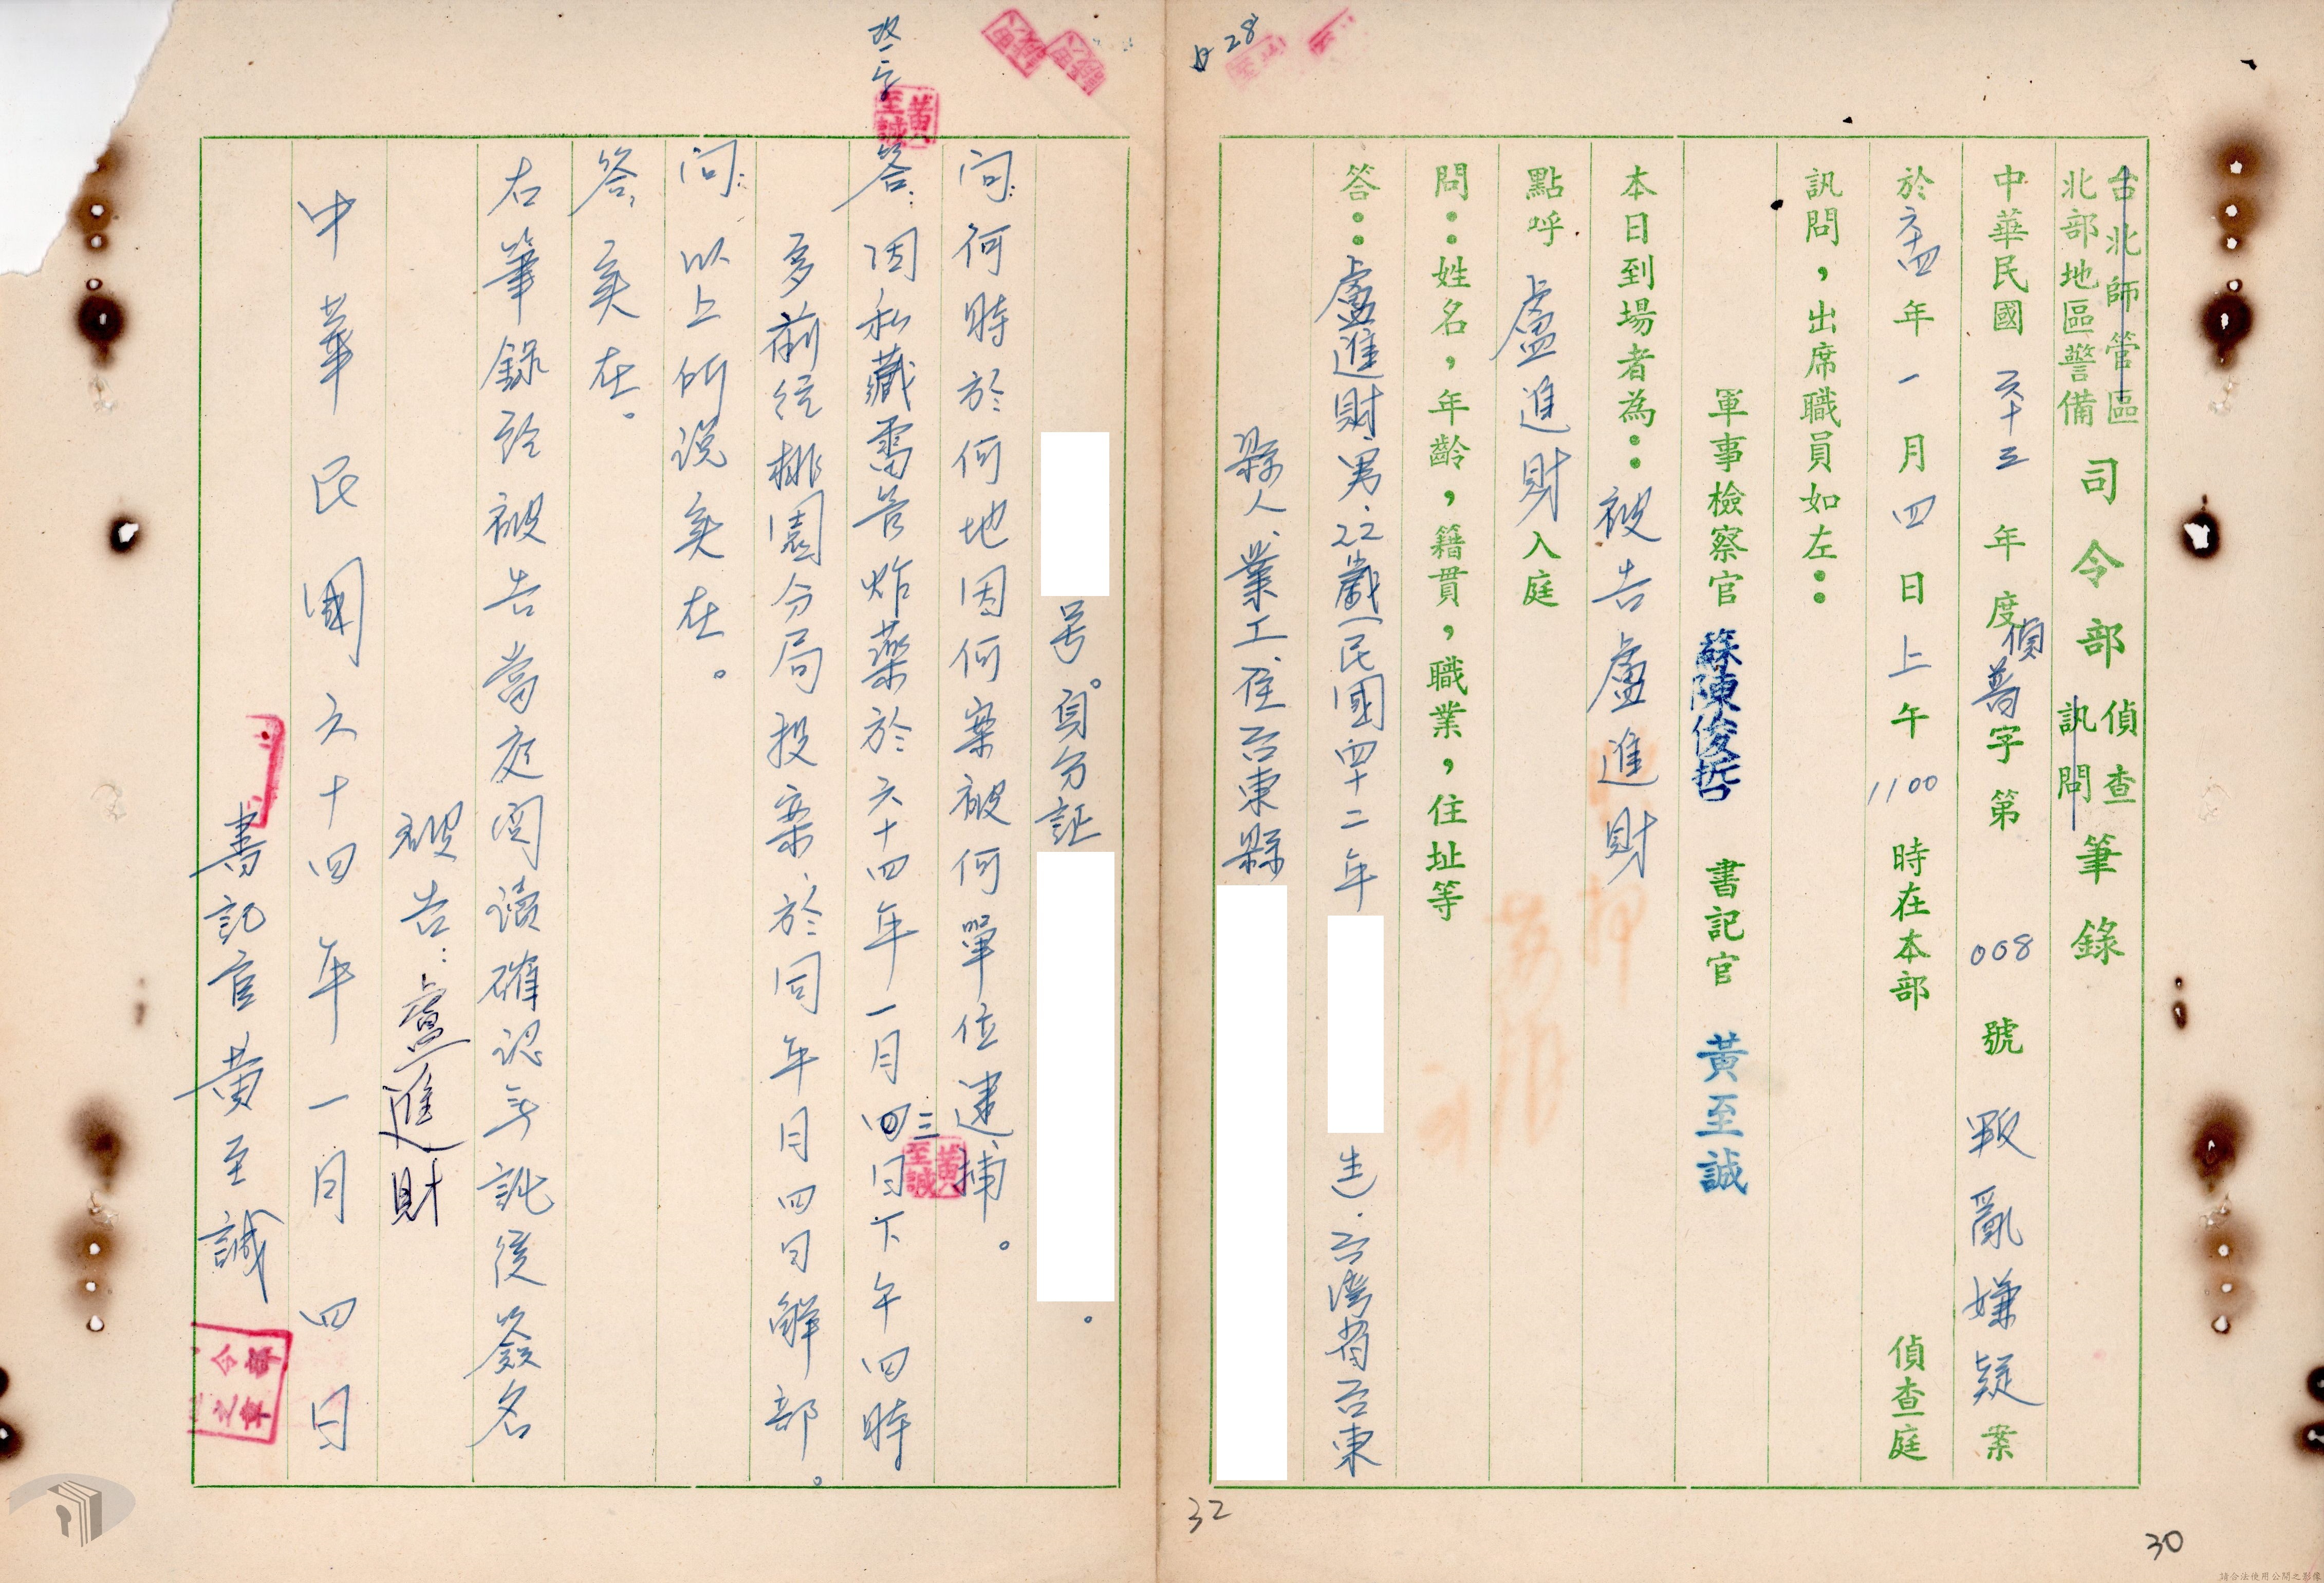 台北師管區
北部地區警備
司令部
偵查
訊問
筆錄
中華民國 六十三 年度偵普字第 008 號 叛亂嫌疑 案
於 六十四 年 一 月 四 日 上 午 1100 時在本部 偵查庭
訊問,出席職員如左:
軍事檢察官 陳俊哲 書記官 黃至誠
本日到場者為:被告盧進財
點呼 盧進財 入庭
問:姓名,年齡,籍貫,職業,住址等
答:盧進財、男、22歲(民國四十二年 生)、台灣省台東
縣人、業工、住台東縣
号。身分証 。
問:何時於何地因何案被何單位逮捕。
答:因私藏雷管炸藥於六十四年一月四三日下午四時
多前往桃園分局投案、於同年月四日解部。
問:以上所說实在。
答、实在。
右筆錄於被告當庭閱讀確認無訛後簽名
被告:盧進財
中華民國六十四年一月四日
書記官黃至誠
改一字
黃至誠
黃至誠
28
32
30
請合法使用公開之影像